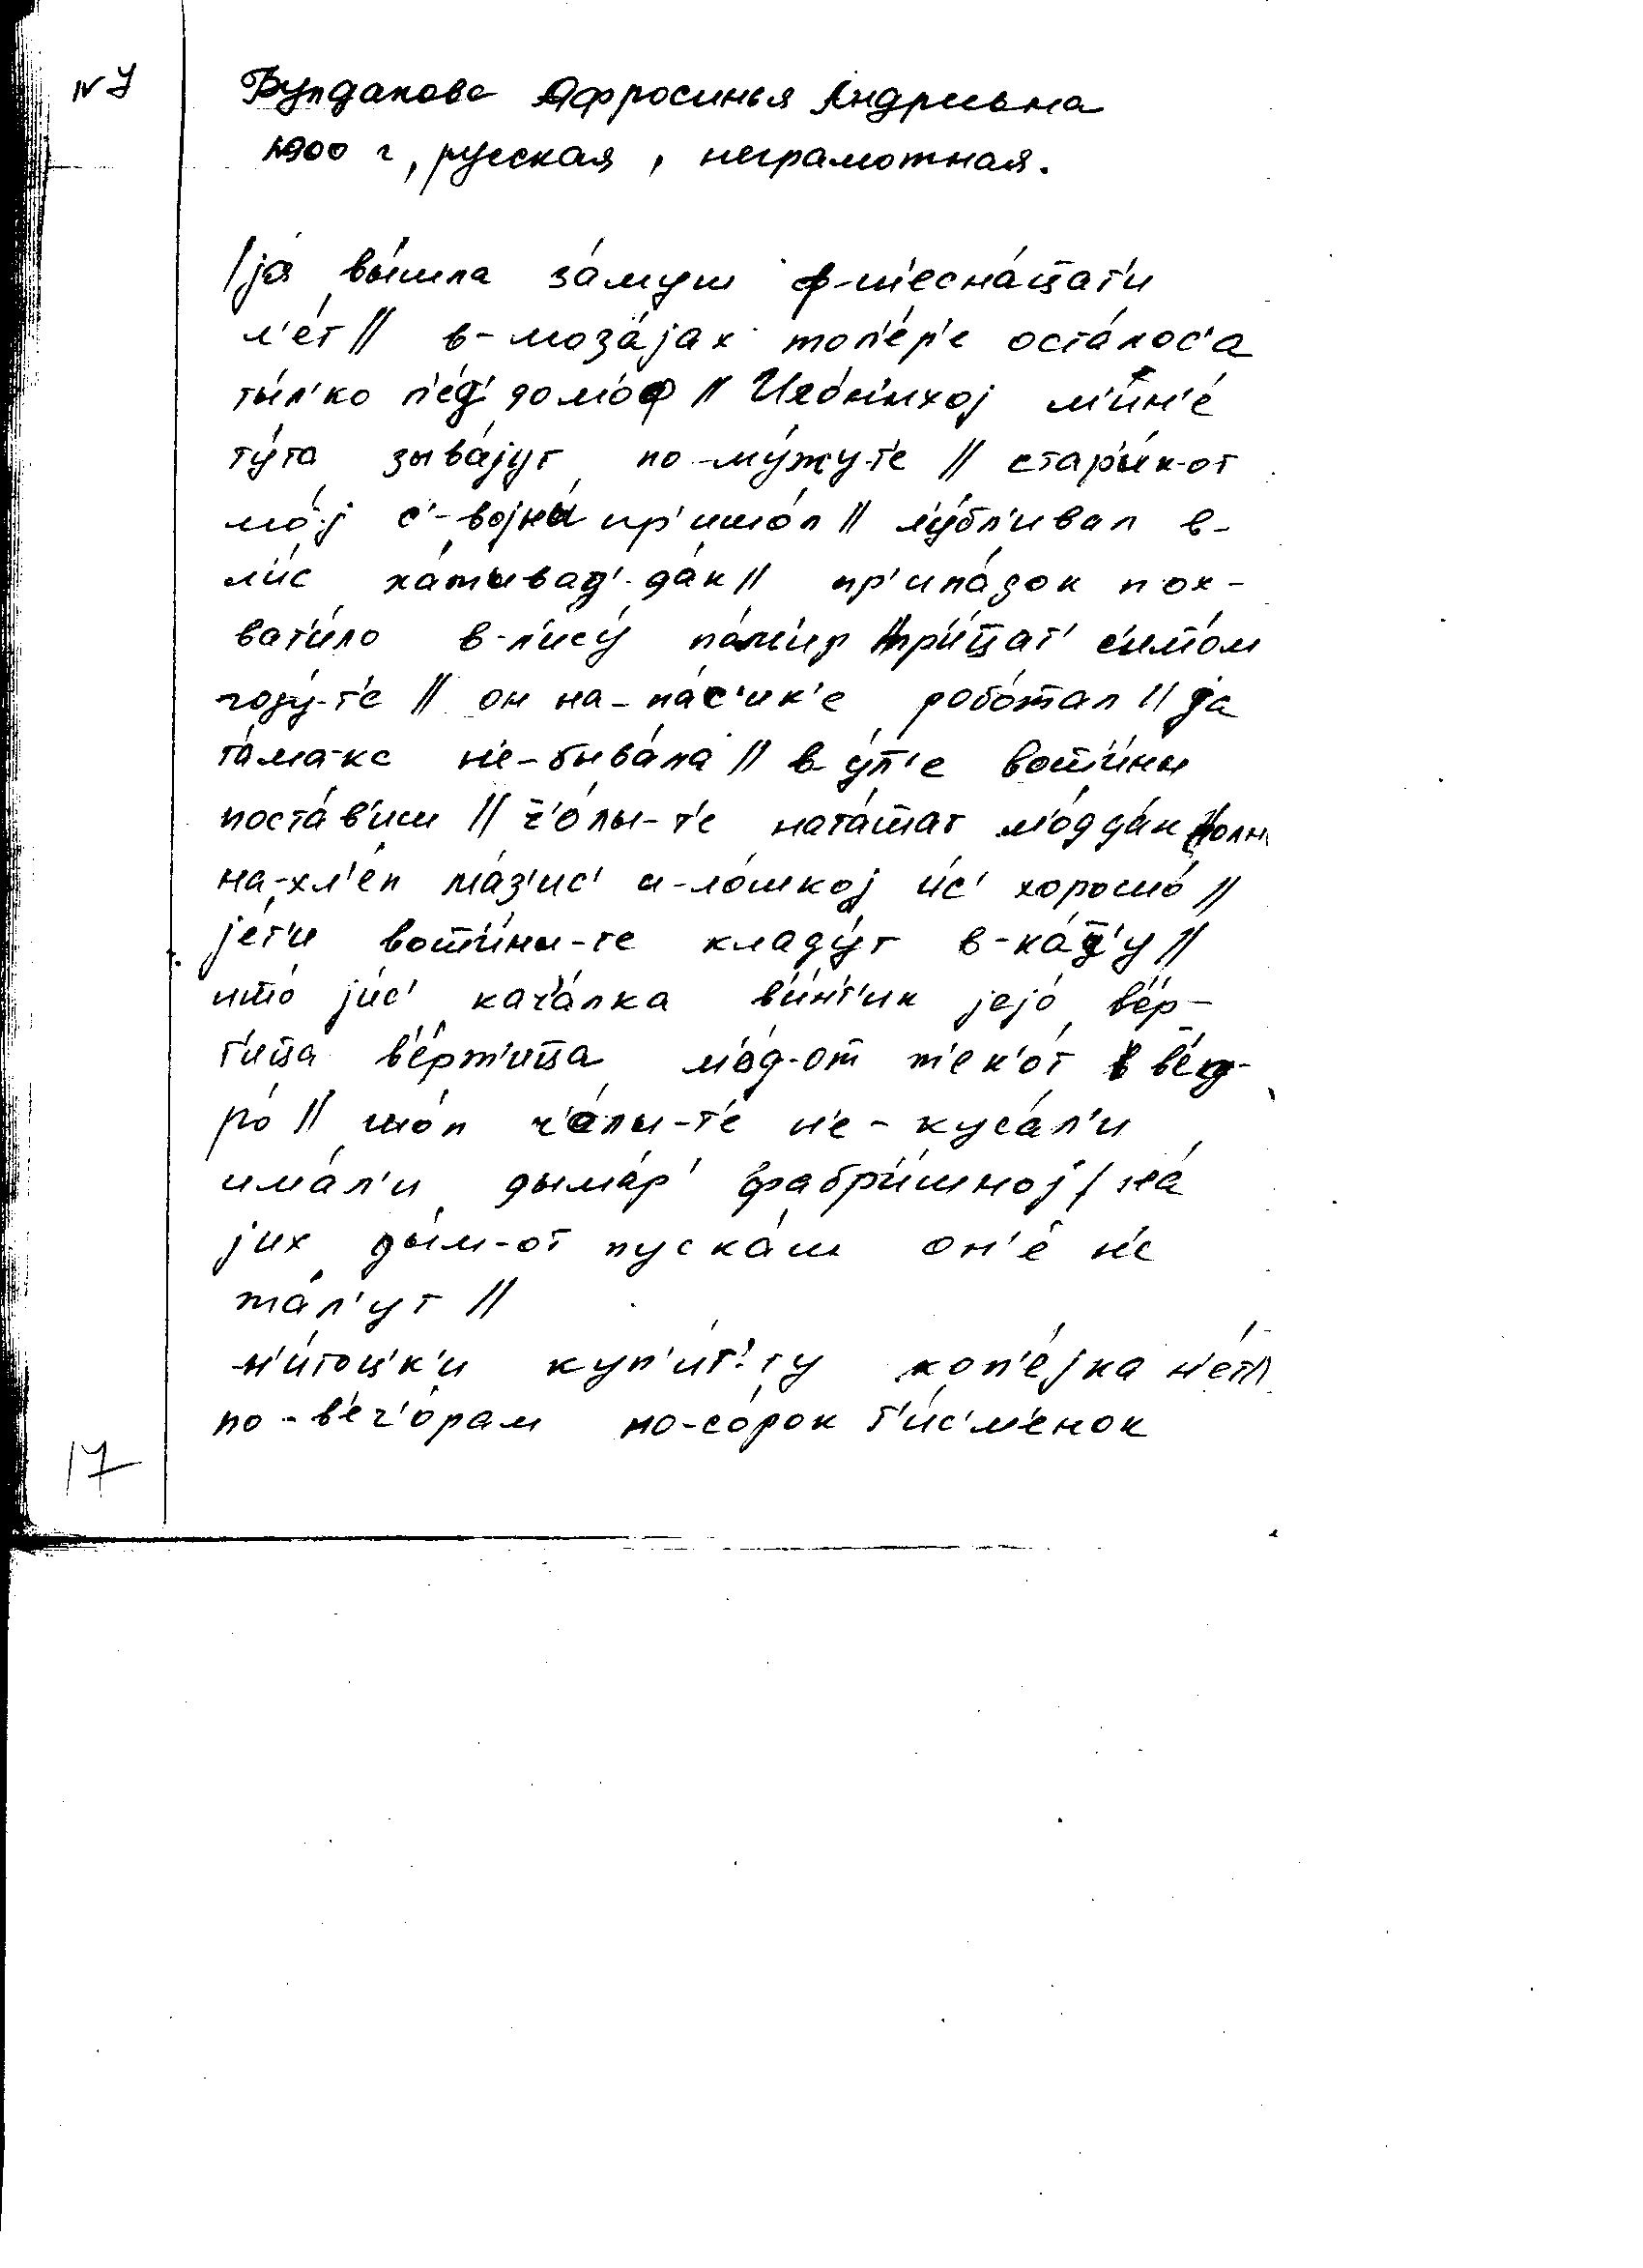 N 7
Бурдакова Афросинья Андриьна
1900 г, русская, неграмотная.
/jа́ вы́шла за́муш ф-ше́сна́цат'и
л'е́т // в-моза́jах топ'е́р'е оста́лос'а
ты́л'ко п'е́д' домо́ф // м'ин'е́
ту́та зыва́jут по-му́жу-т'е // стар'и́к-от
мо́j с'-воjны́ пр'ишо́л // л'у́бл'ивал в-
л'и́с ха́жыват'-да́к // пр'ипа́док пох-
вати́ло в-л'ису́ тр'и́цат' с'имо́м
году́-т'е // он на-па́с'ик'е робо́тал // jа
та́мака н'е-быва́ла // в-у́л'е вошши́ны
поста́в'иш // ч'о́лы-т'е ната́шшат м'о́д да́к
на-хл'е́п ма́з'ис' и-ло́шкоj и́с' хорошо́ //
jе́т'и вошши́ны-те кладу́т в-ка́д'у //
што́ jи́с' кач'а́лка в'и́нт'ик jеjо́ в'е́р-
т'ица в'е́рт'ица м'о́д-от т'ек'о́т в в'ед-
ро́ // шо́п ч'о́лы-т'е н'е-куса́л'и
има́л'и дыма́р' фабри́шноj / на́
jих ды́м-от пуска́ш он'е́ н'е
жа́л'ут //
н'и́тоц'к'и куп'и́т'-ту коп'е́jка н'е́т //
по-в'еч'о́рам по-со́рок п'и́с'м'енок
17